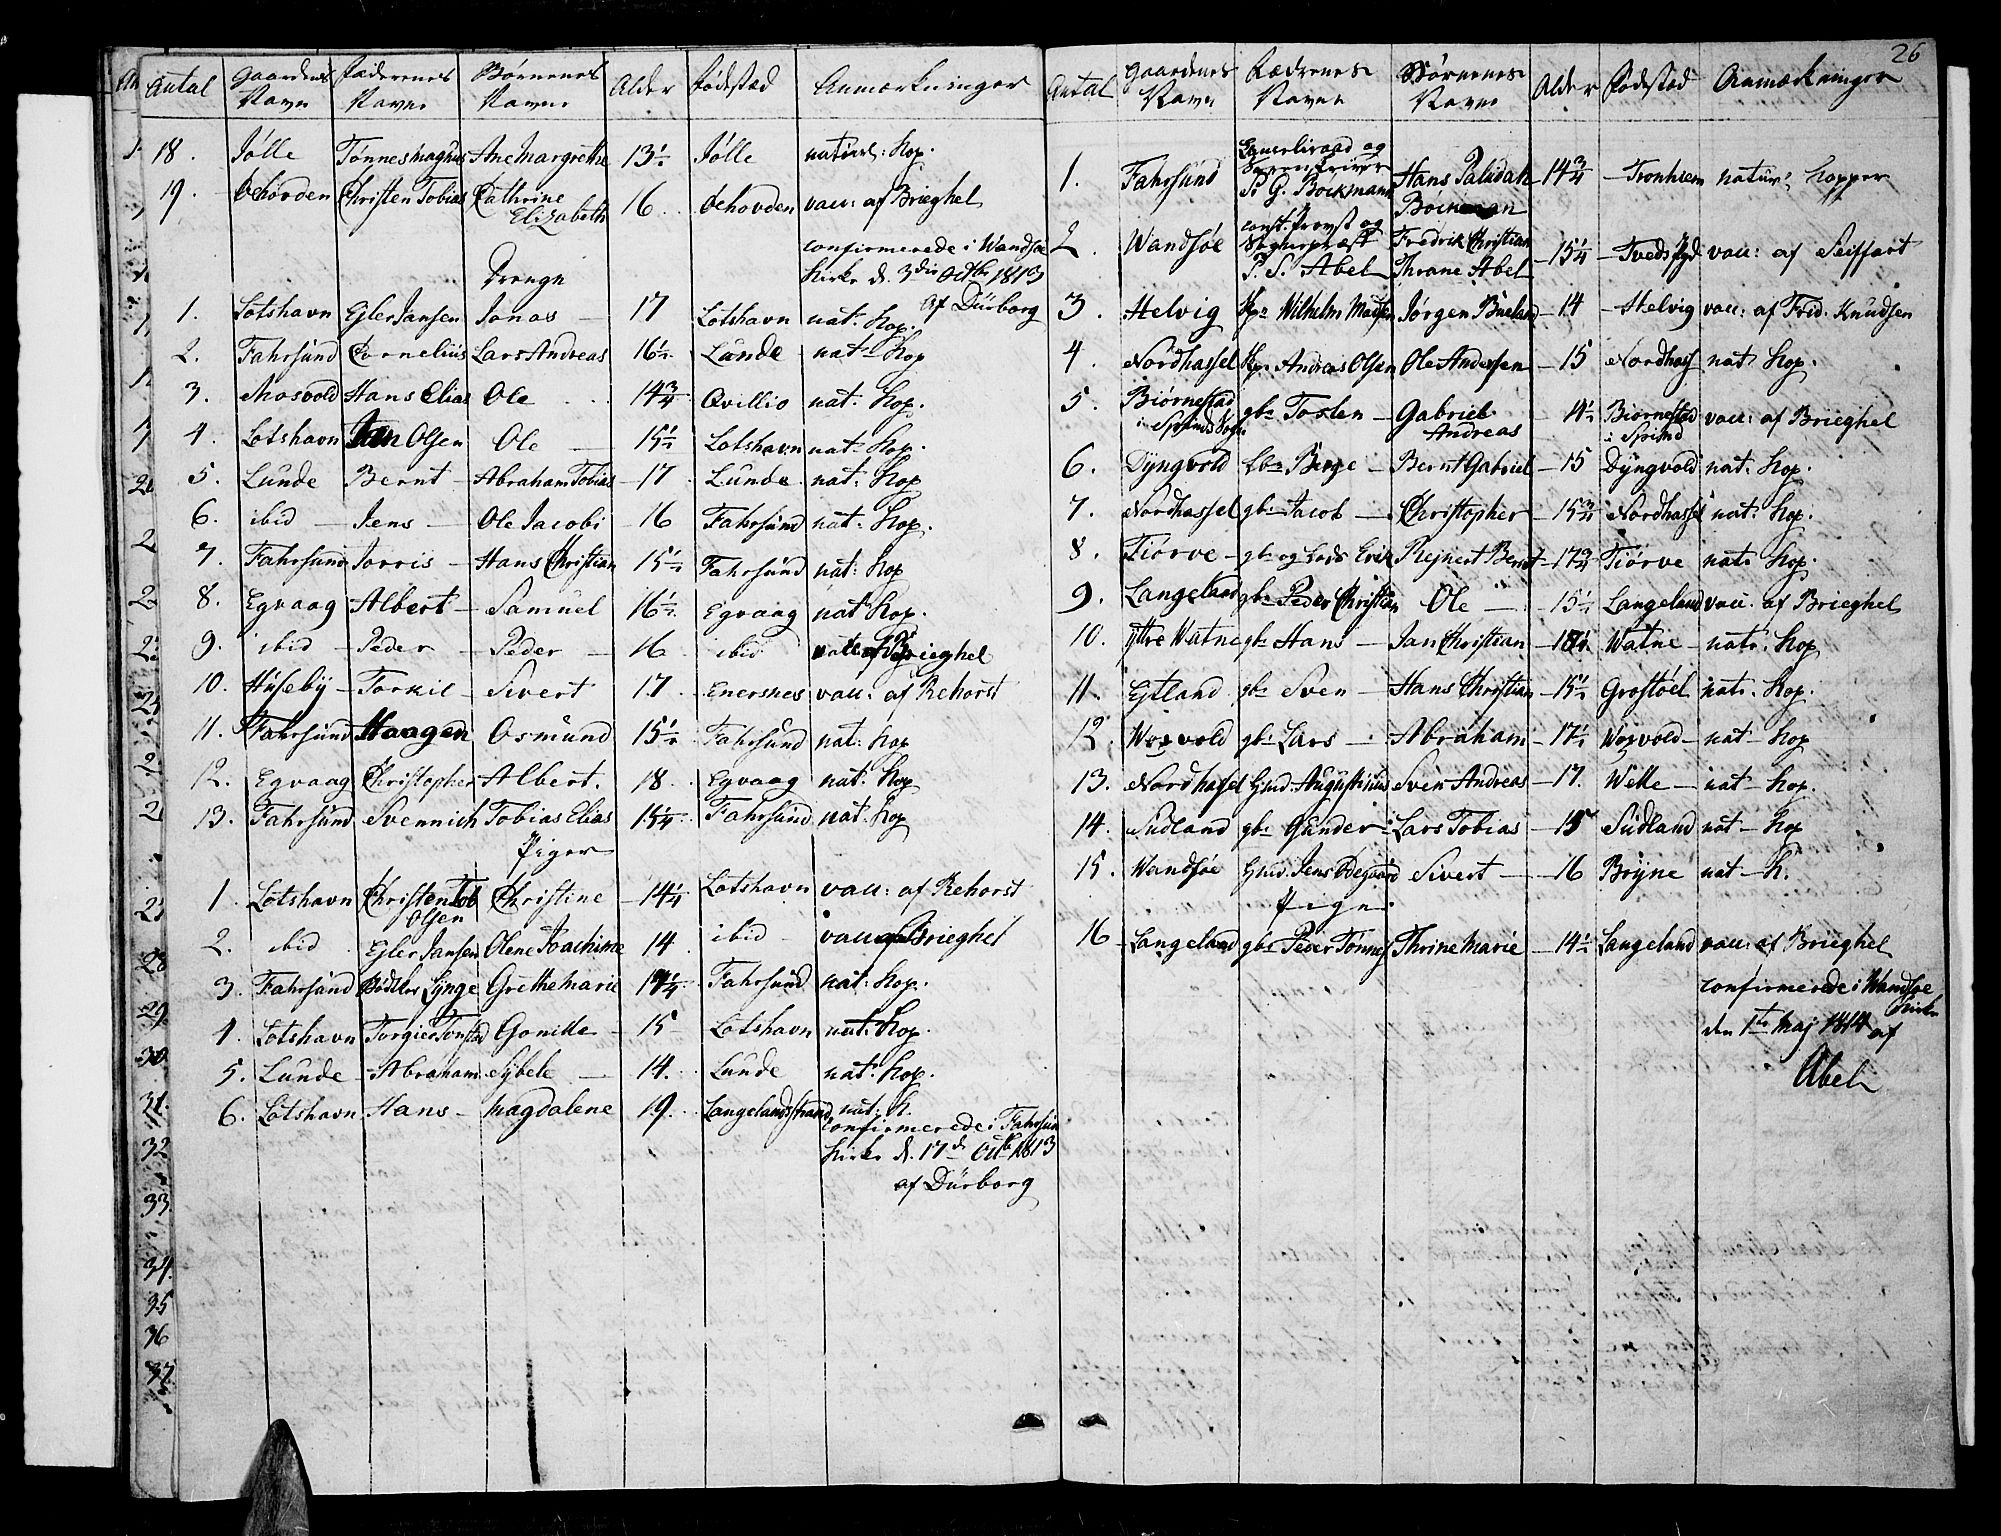 Antal Gaardenes Navn Fædrenes Navne Børnenes Navne Alder Fødested Anmærkninger
18. Jólle Tønnes Magnus Ane Margrethe 13½ Jólle naturl: Kop.
19. Ohovden Christen Tobias Cathrine Elizabeth 16 Ohovden vacc: af Brieghel
confirmerede i Wandsøe
Kirke d. 3die Octbr 1813
af Dürborg
Drenge
1. Lotshavn Egler Jansen Jonas 17 Lotshavn nat: Kop.
2. Fahrsund Cornelius Lars Andreas 16½ Lunde nat: Kop
3. Mosvold Hans Elias Ole 14¾ Qvillio nat: Kop.
4. Lotshavn Jan Olsen Ole 15½ Lotshavn nat: Kop.
5. Lunde Bernt Abraham Tobias 17 Lunde nat: Kop
6. ibid Jens Ole Jacobi 16 Fahrsund nat: Kop.
7. Fahrsund Jorris Hans Christian 15½ Fahrsund nat: Kop
8. Egvaag Albert Samuel 16½ Egvaag nat: Kop.
9. ibid Peder Peder 16 ibid vacc: af Brieghel
10. Huseby Torkil Sivert 17 Enersnes vacc: af Rehorst
11. Fahrsund Haagen Osmund 15½ Fahrsund nat: Kop
12. Egvaag Christopher Albert. 18 Egvaag nat: Kop
13. Fahrsund Svennich Tobias Elias 15¼ Fahrsund nat: Kop
Piger
1. Lotshavn Christen Tob Olsen Christine 14¼ Lotshavn vacc: af Rehorst
2. ibid Egler Jansen Olene Joachime 14 ibid vacc: af Brieghel
3. Fahrsund Bødker Lynge Grethe Marie 14¼ Fahrsund nat: Kop.
4. Lotshavn Torgier Tonstad Gonilde 15 Lotshavn nat: Kop.
5. Lunde Abraham Sybele 14. Lunde nat: Kop.
6. Lotshavn Hans Magdalene 19. Langelandsstrand nat: K.
confirmerede i Fahrsund
Kirke d. 17de Octbr 1813
af Dürborg
26
Antal Gaardenes Navn Fædrenes Navne Børnenes Navne Alder Fødested Anmærkninger
1. Fahrsund Cancelieraad og Sorenskriver P. G. Bockmann Hans Palüdan Bockman 14¾ Tronhiem natürl: Kopper
2. Wandsøe const: Provst og Sognepræst P. S. Abel Fredrik Christian Thrane Abel 15¼ Tveds Pgd vacc: af Seiffart
3. Helvig Wilhelm Madsen Jørgen Bueland 14 Helvig vacc: af Frid. Knudsen
4. Nordhassel Andreas Olsen Ole Andersen 15 Nordhassel nat: Kop.
5. Biørnestad i Spinds Sogn gbr Tosten Gabriel Andreas 14½ Biørnestad i Spind vacc: af Brieghel
6. Dyngvold Lbr Berge Bernt Gabriel 15 Dyngvold nat: Kop.
7. Nordhassel gbr Jacob Christopher 15¾ Nordhassel nat: Kop.
8. Tiørve gbr og Lods Erik Rejnert Bernt 17¾ Tiørve nat: Kop.
9. Langeland gbr Peder Christian Ole 15½ Langeland vacc: af Brieghel
10. Ytre Watne gbr Hans Jan Christian Watne nat: Kop
11. Ejtland gbr Sven Hans Christian 15½ Grostøel nat: Kop.
12. Worvold gbr Lars Abraham 17½ Worvold nat: Kop
13. Nordhassel Hmd. Augustinus Sven Andreas 17. Welle nat: Kop.
14. Südland gbr Gunder Lars Tobias 15 Südland nat: Kop
15. Wandsøe Hmd. Jens Ødegaard Sivert 16 Bryne nat: K.
Pige.
16 Langeland gbr Peder Tønnes Thrine Marie 14½ Langeland vacc: af Brieghel
confirmerede i Wandsøe
Kirke
den 1te Maj 1814 af
Abel
28
29
30
31.
32
33.
34.
35
36
37